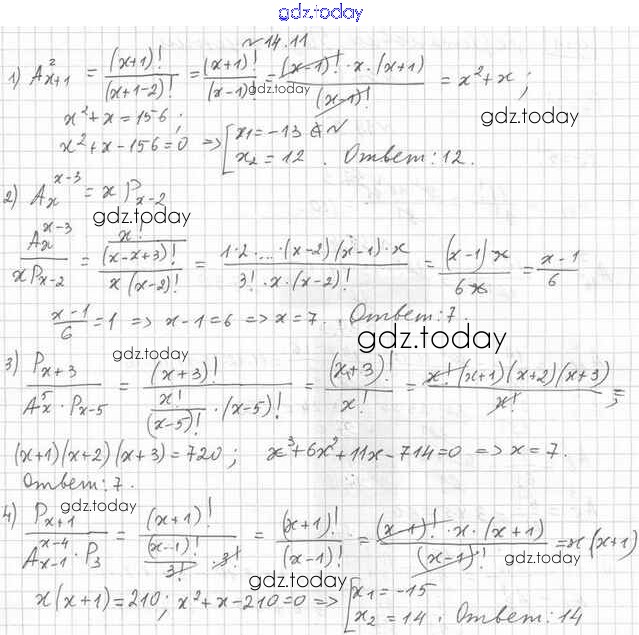 gdz.today
№14.11
1) A²ₓ₊₁ = (x+1)! / (x+1-2)! = (x+1)! / (x-1)! = (x-1)!·x·(x+1) / (x-1)! = x²+x;
gdz.today
x²+x=156;
gdz.today
x²+x-156=0 => [x₁=-13 ∉ N
x₂=12. Ответ: 12.
2) Aₓˣ⁻³ = x Pₓ₋₂
gdz.today
Aₓˣ⁻³ / xPₓ₋₂ = (x! / (x-x+3)!) / (x(x-2)!) = 1·2·...·(x-2)(x-1)·x / 3!·x·(x-2)! = (x-1)x / 6x = (x-1) / 6
(x-1)/6 = 1 => x-1=6 => x=7. Ответ: 7.
gdz.today
gdz.today
3) Pₓ₊₃ / (Aₓ⁵·Pₓ₋₅) = (x+3)! / (x!/(x-5)! · (x-5)!) = (x+3)! / x! = x!(x+1)(x+2)(x+3) / x! =;
(x+1)(x+2)(x+3)=720; x³+6x²+11x-714=0 => x=7.
Ответ: 7.
gdz.today
4) Pₓ₊₁ / (Aₓ₋₁ˣ⁻⁴·P₃) = (x+1)! / ((x-1)!/3! · 3!) = (x+1)! / (x-1)! = (x-1)!·x·(x+1) / (x-1)! = x(x+1)
gdz.today
gdz.today
x(x+1)=210; x²+x-210=0 => [x₁=-15
x₂=14. Ответ: 14